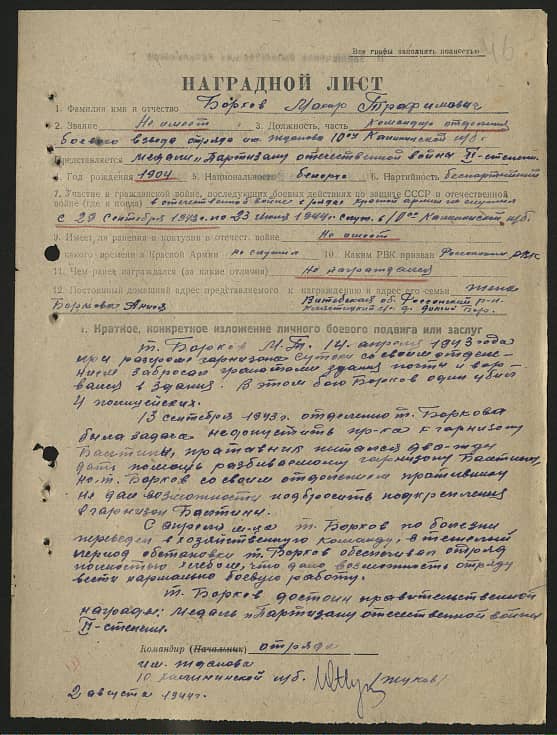 Все графы заполнять полностью
46
НАГРАДНОЙ ЛИСТ
1. Фамилия имя и отчество Борков Макар Трафимович
2. Звание Не имеет 3. Должность, часть Командир отделения
боевого взвода отряда им Жданова 10ой Калининской п/б.
Представляется медали "Партизану отечественной война II-степени.
4. Год рождения 1904 5. Национальность белорус 6. Партийность Беспартийный
7. Участие в гражданской войне, последующих боевых действиях по защите СССР и отечественной
войне (где и когда) в отечественной войне в рядах красной армии не служил
с 29 Сентября 1942г. по 23 июня 1944г. 10ой Калининской п/б
9. Имеет ли ранения и контузии в отечест. войне Не имеет
какого времени в Красной Армии не служил 10. Каким РВК призван Россонским РВК
11. Чем ранее награждался (за какие отличия) Не награждался
12. Постоянный домашний адрес представляемого к награждению и адрес его семьи Жена
Боркова Анися Витебская об. Россонский р-н.
1. Краткое, конкретное изложение личного боевого подвига или заслуг
т. Борков М.Т. 14 апреля 1943 года
при разгроме гарнизона Сутоки со своим отделе-
нием забросал гранатами здания почты и вор-
вался в здания. В этом бою Борков один убил
4 полицейских.
13 сентября 1943г. отделению т. Боркова
была задача недопустить пр-ка к гарнизону
Бастины, пративник питался два-жды
дать помощь разбиваемому гарнизону Бастины,
но т. Борков со своим отделением пративнику
не дал возможности подбросить подкрепления
в гарнизон Бастины.
С апреля м-ца т. Борков по болезни
переведен в хозяйственную команду, в тежелый
период обстановки т. Борков обеспечивал отряд
полностью хлебом, что дало возможность отряду
вести нармально боевую работу.
т. Борков достоин правительственной
награды: медаль "Партизану отечественной война
II-степени.
Командир (Начальник) отряда
им. Жданова
10 Калининской п/б. /Жуков/
2 августа 1944г.